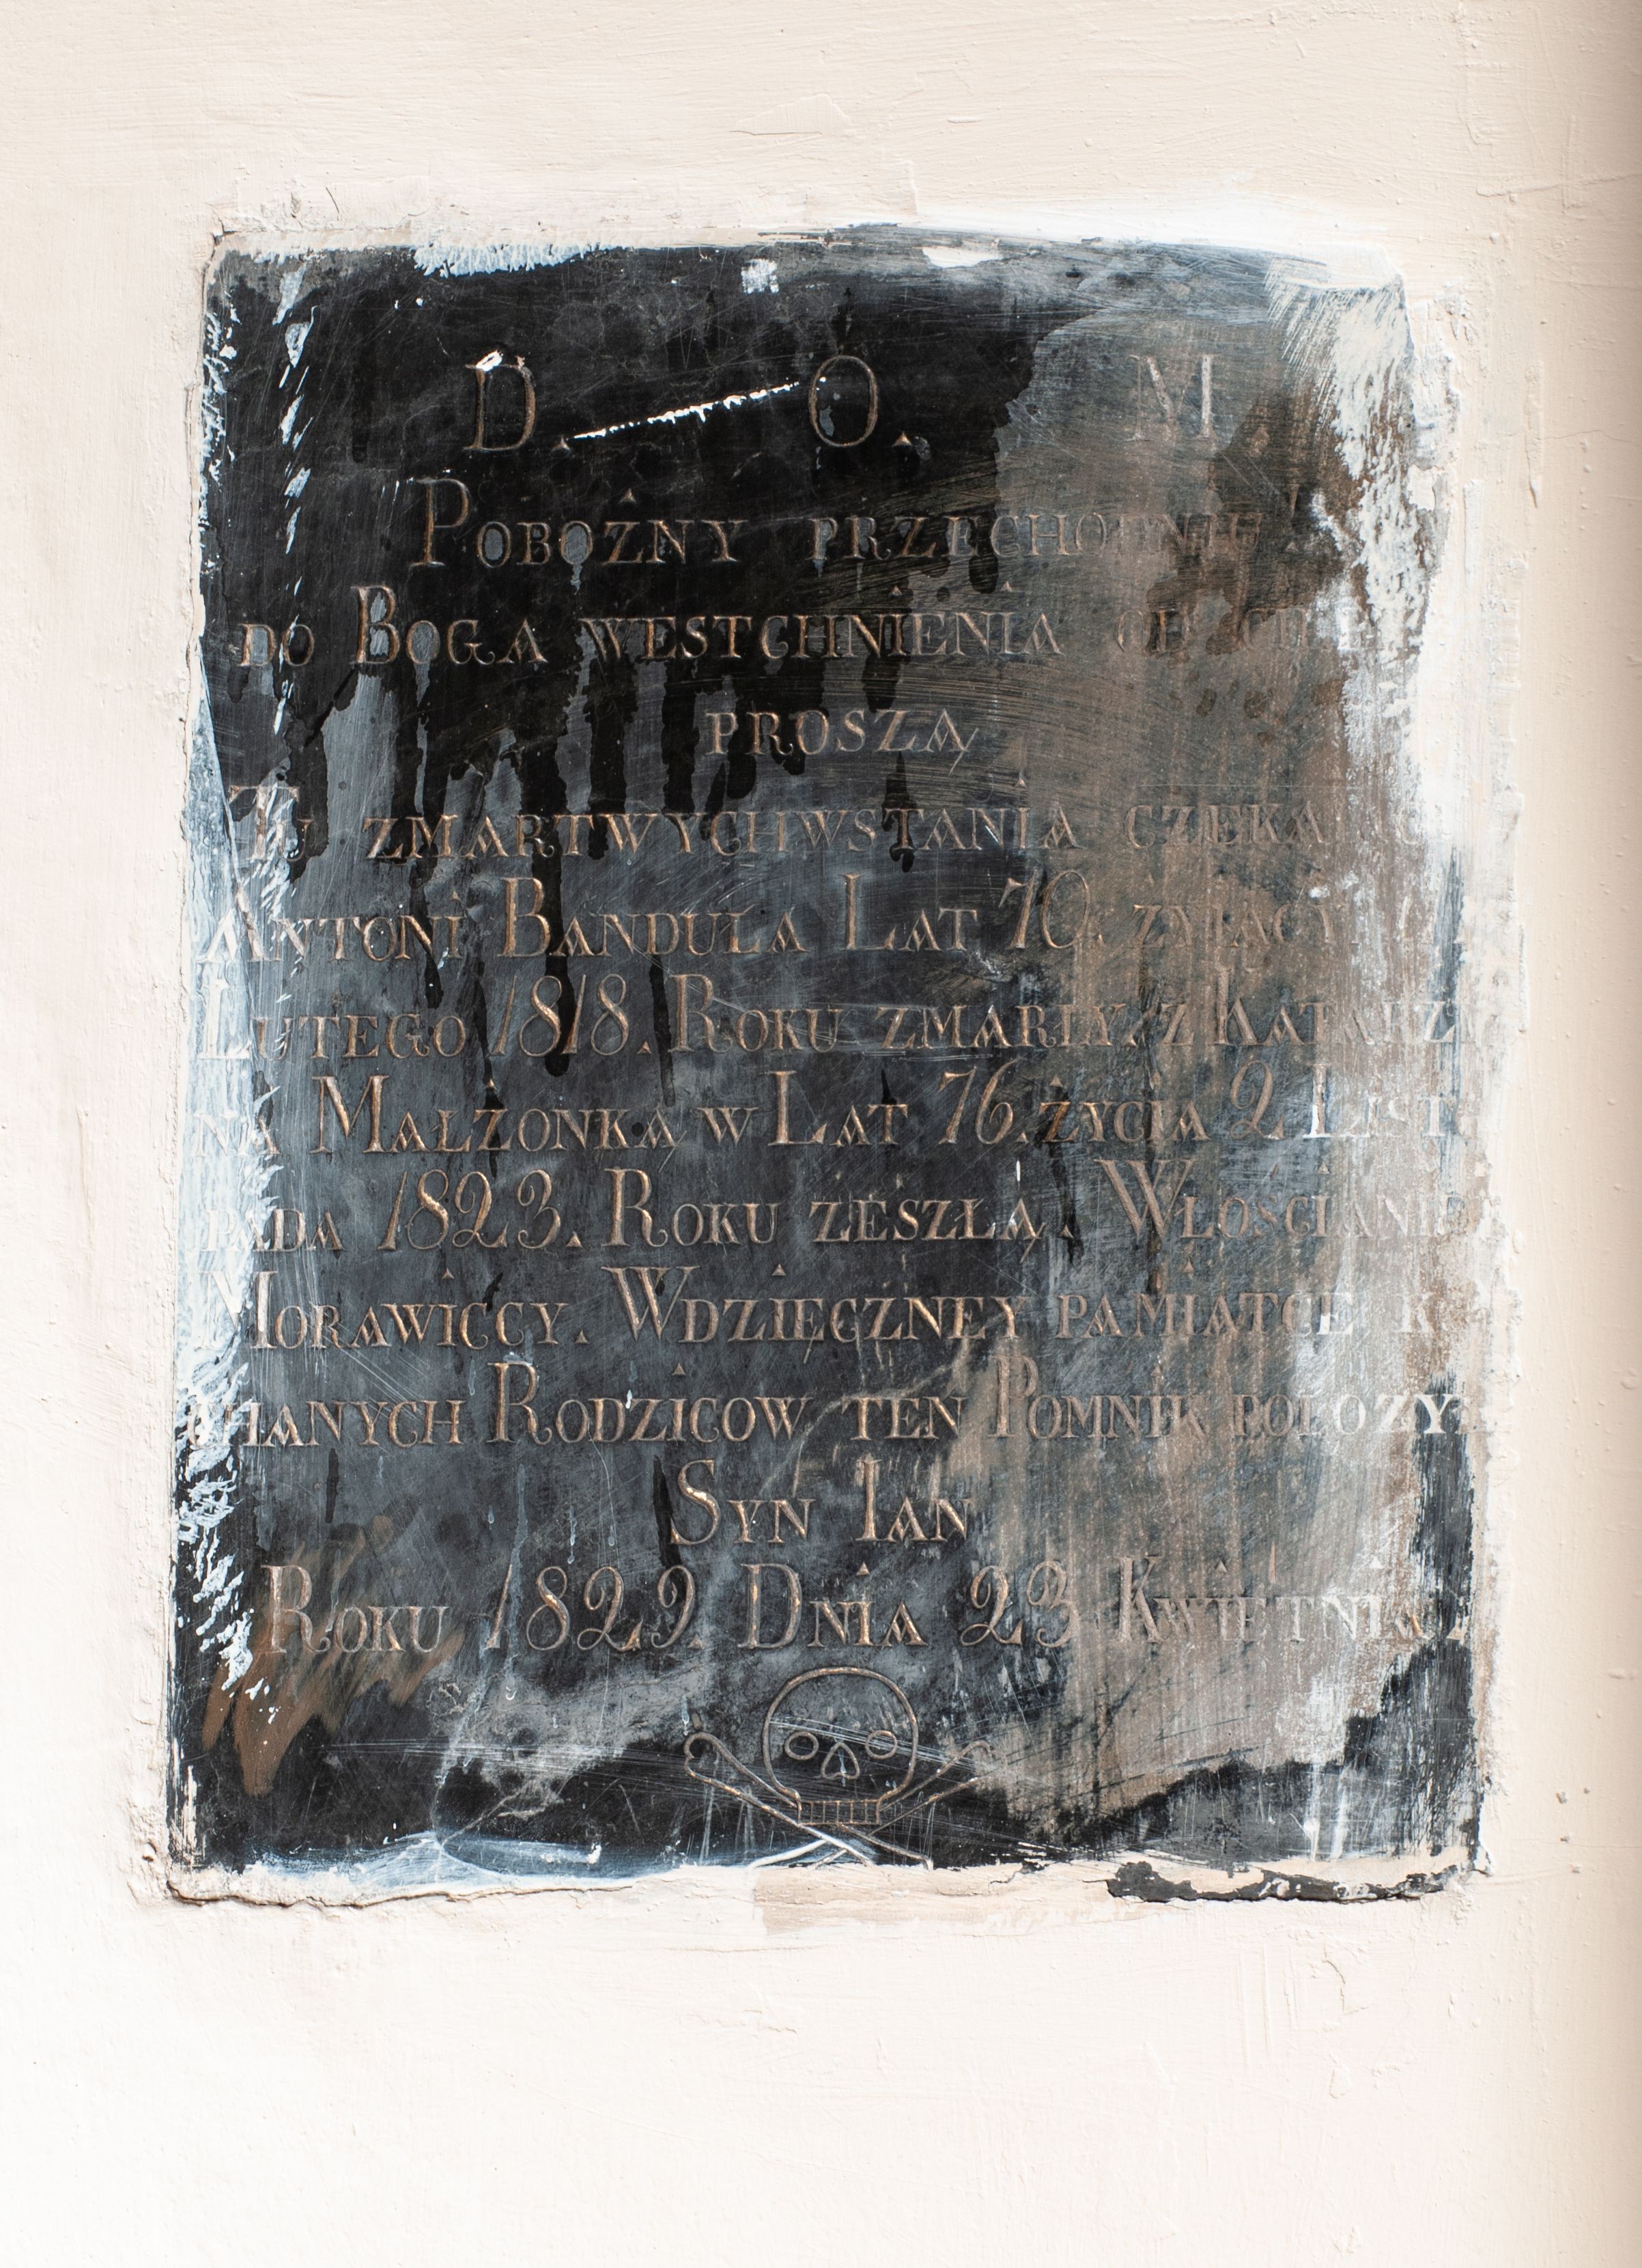 D. O. M
POBOŻNY PRZECHODNIU
DO BOGA WESTCHNIENIA
PROSZĄ
TU ZMARTWYCHWSTANIA CZEKA
ANTONI BANDUŁA LAT 70. ZYIĄCY
LUTEGO 1818. ROKU ZMARŁY, Z KATARZY
NĄ MAŁŻONKĄ W LAT 76. ŻYCIA 2 LISTO
PADA 1823. ROKU ZESZŁĄ. WŁOŚCIANIE
MORAWICCY. WDZIĘCZNEY PAMIATCE KO
CHANYCH RODZICOW TEN POMNIK POŁOZYŁ
SYN IAN
ROKU 1829. DNIA 23 KWIETNIA